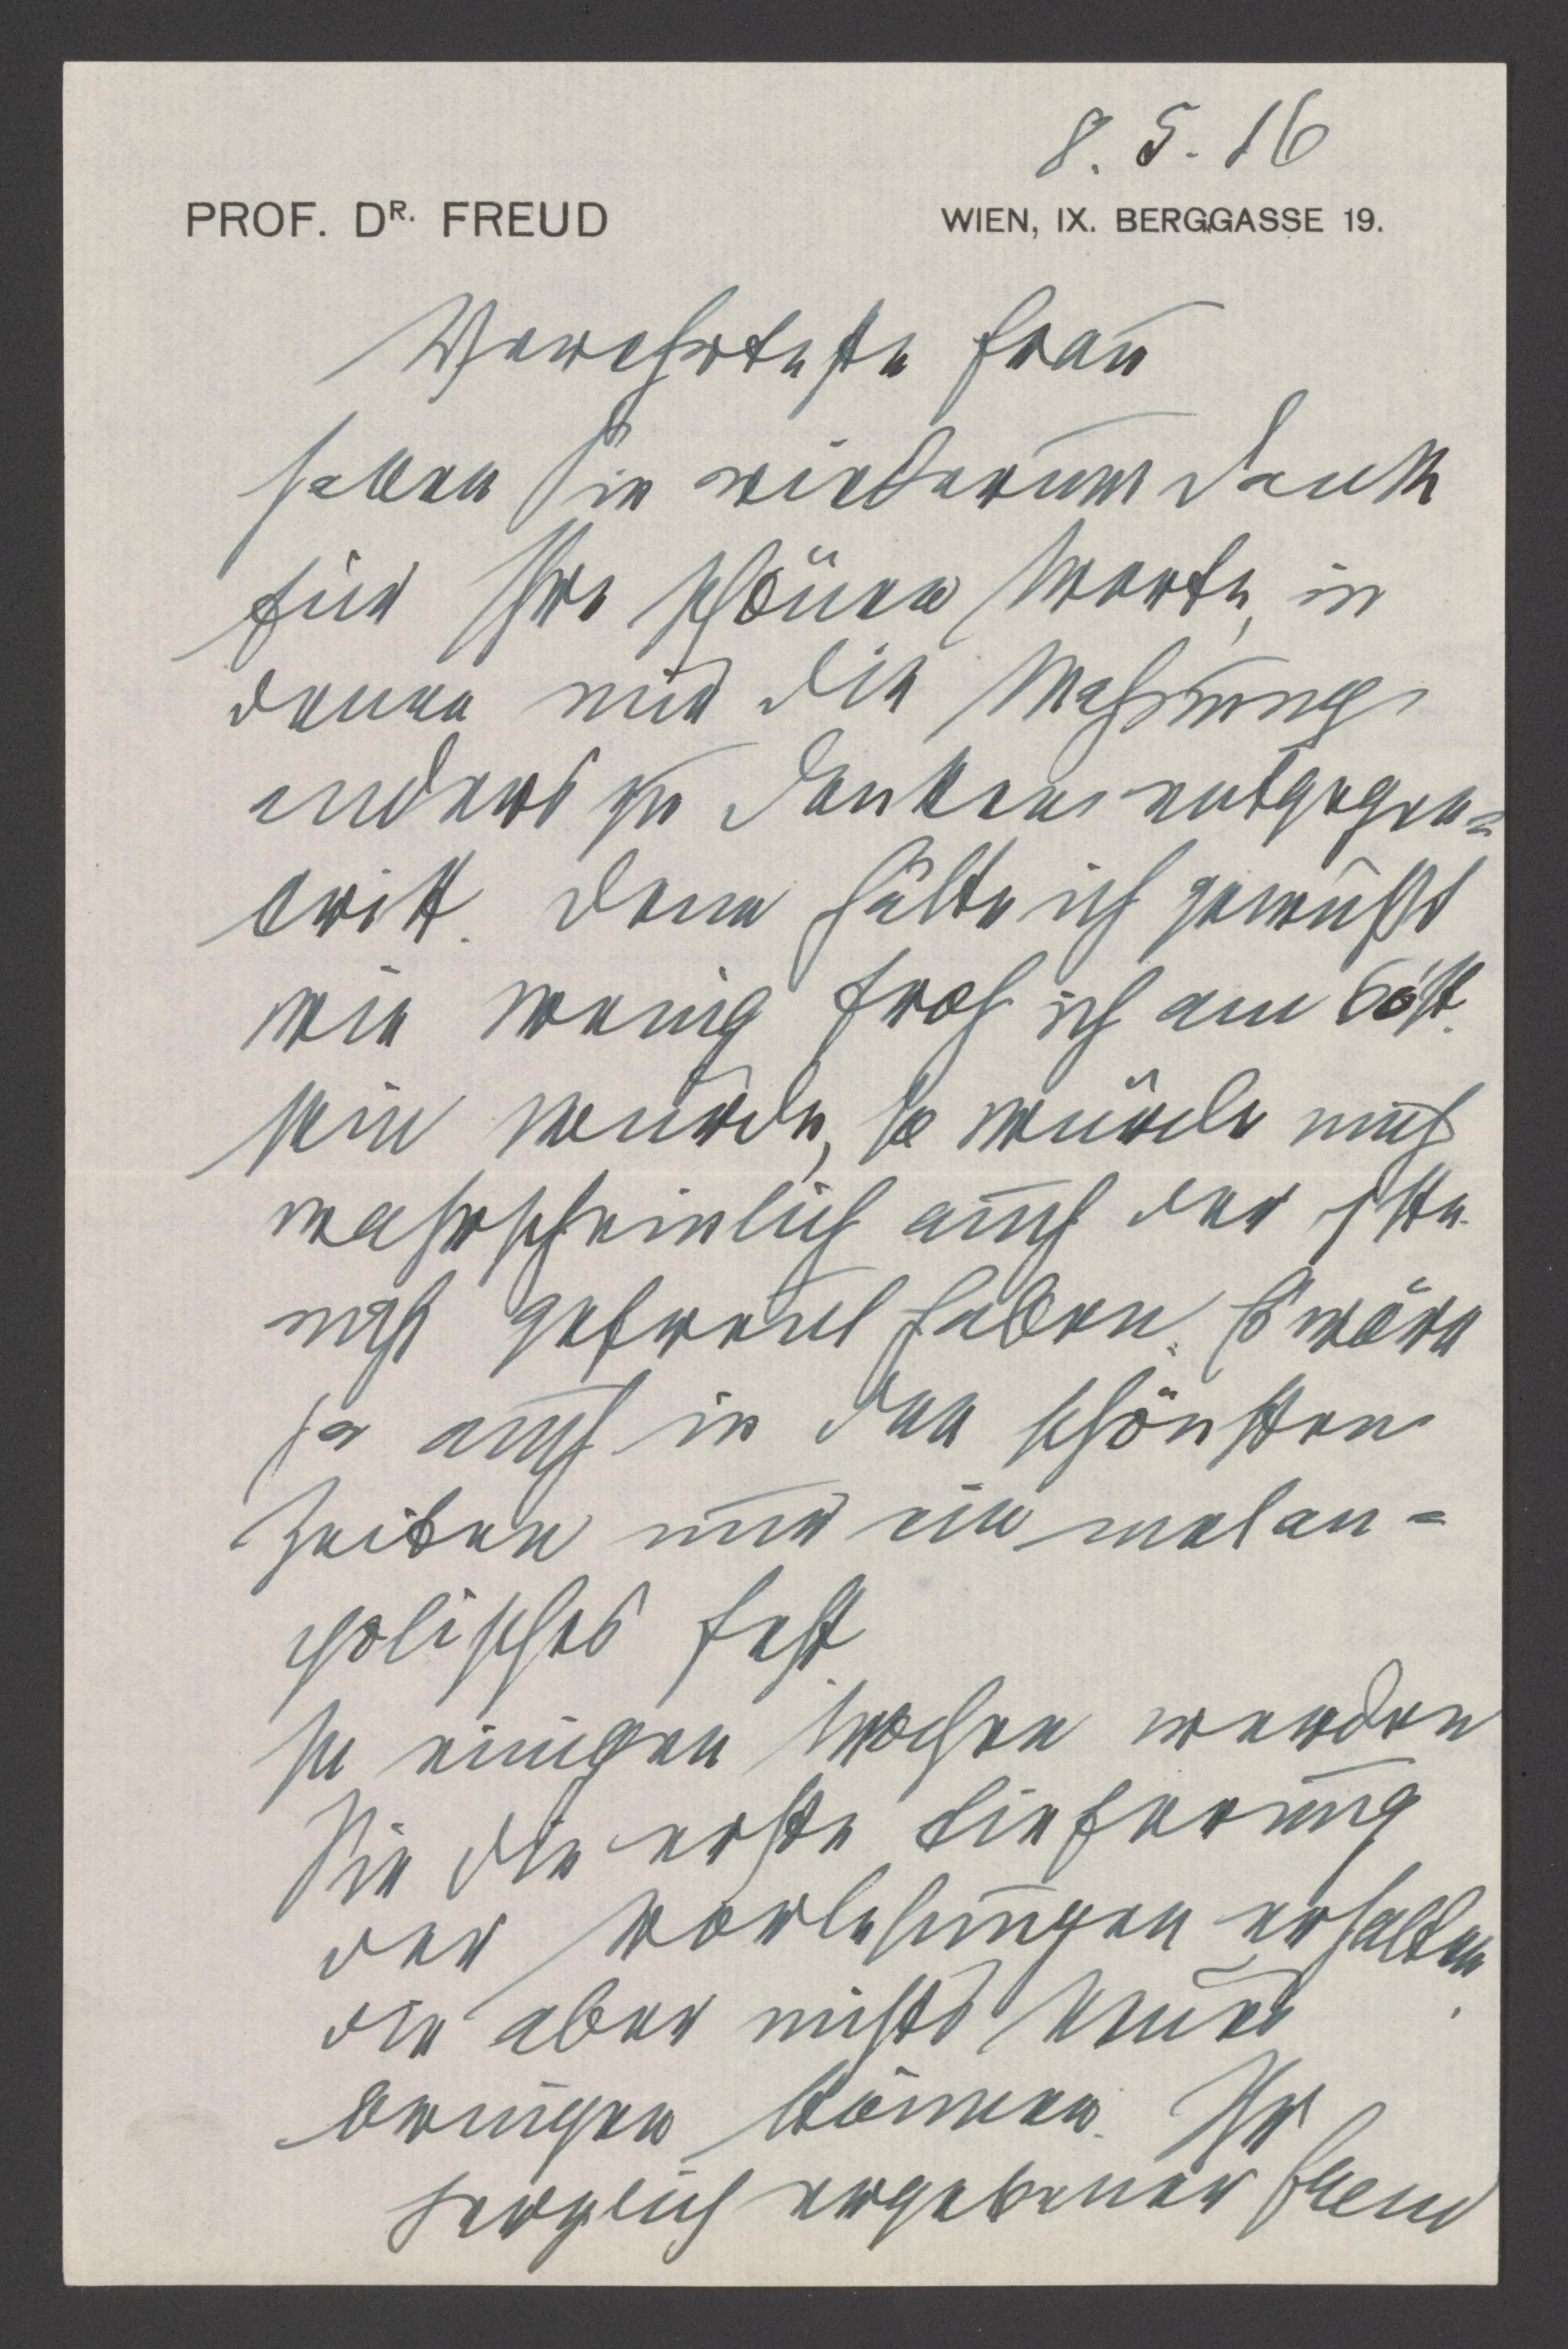 8. 5. 16
PROF. DR. FREUD
WIEN, IX. BERGGASSE 19.
Verehrteste Frau
Haben Sie wiederum Dank
für Ihre schönen Worte, in
denen mir die Mahnung
anders zu denken entgegen=
tritt. Denn hätte ich gewußt
wie wenig froh ich am 60st.
sein würde, so würde mich
wahrscheinlich auch der 1ste
nicht gefreut haben. Es wäre
ja auch in den schönsten
Zeiten nur ein melan=
cholisches Fest.
In einigen Wochen werden
Sie die erste Lieferung
der Vorlesungen erhalten,
die aber nichts Neues
bringen können. Ihr
herzlich ergebener Freud